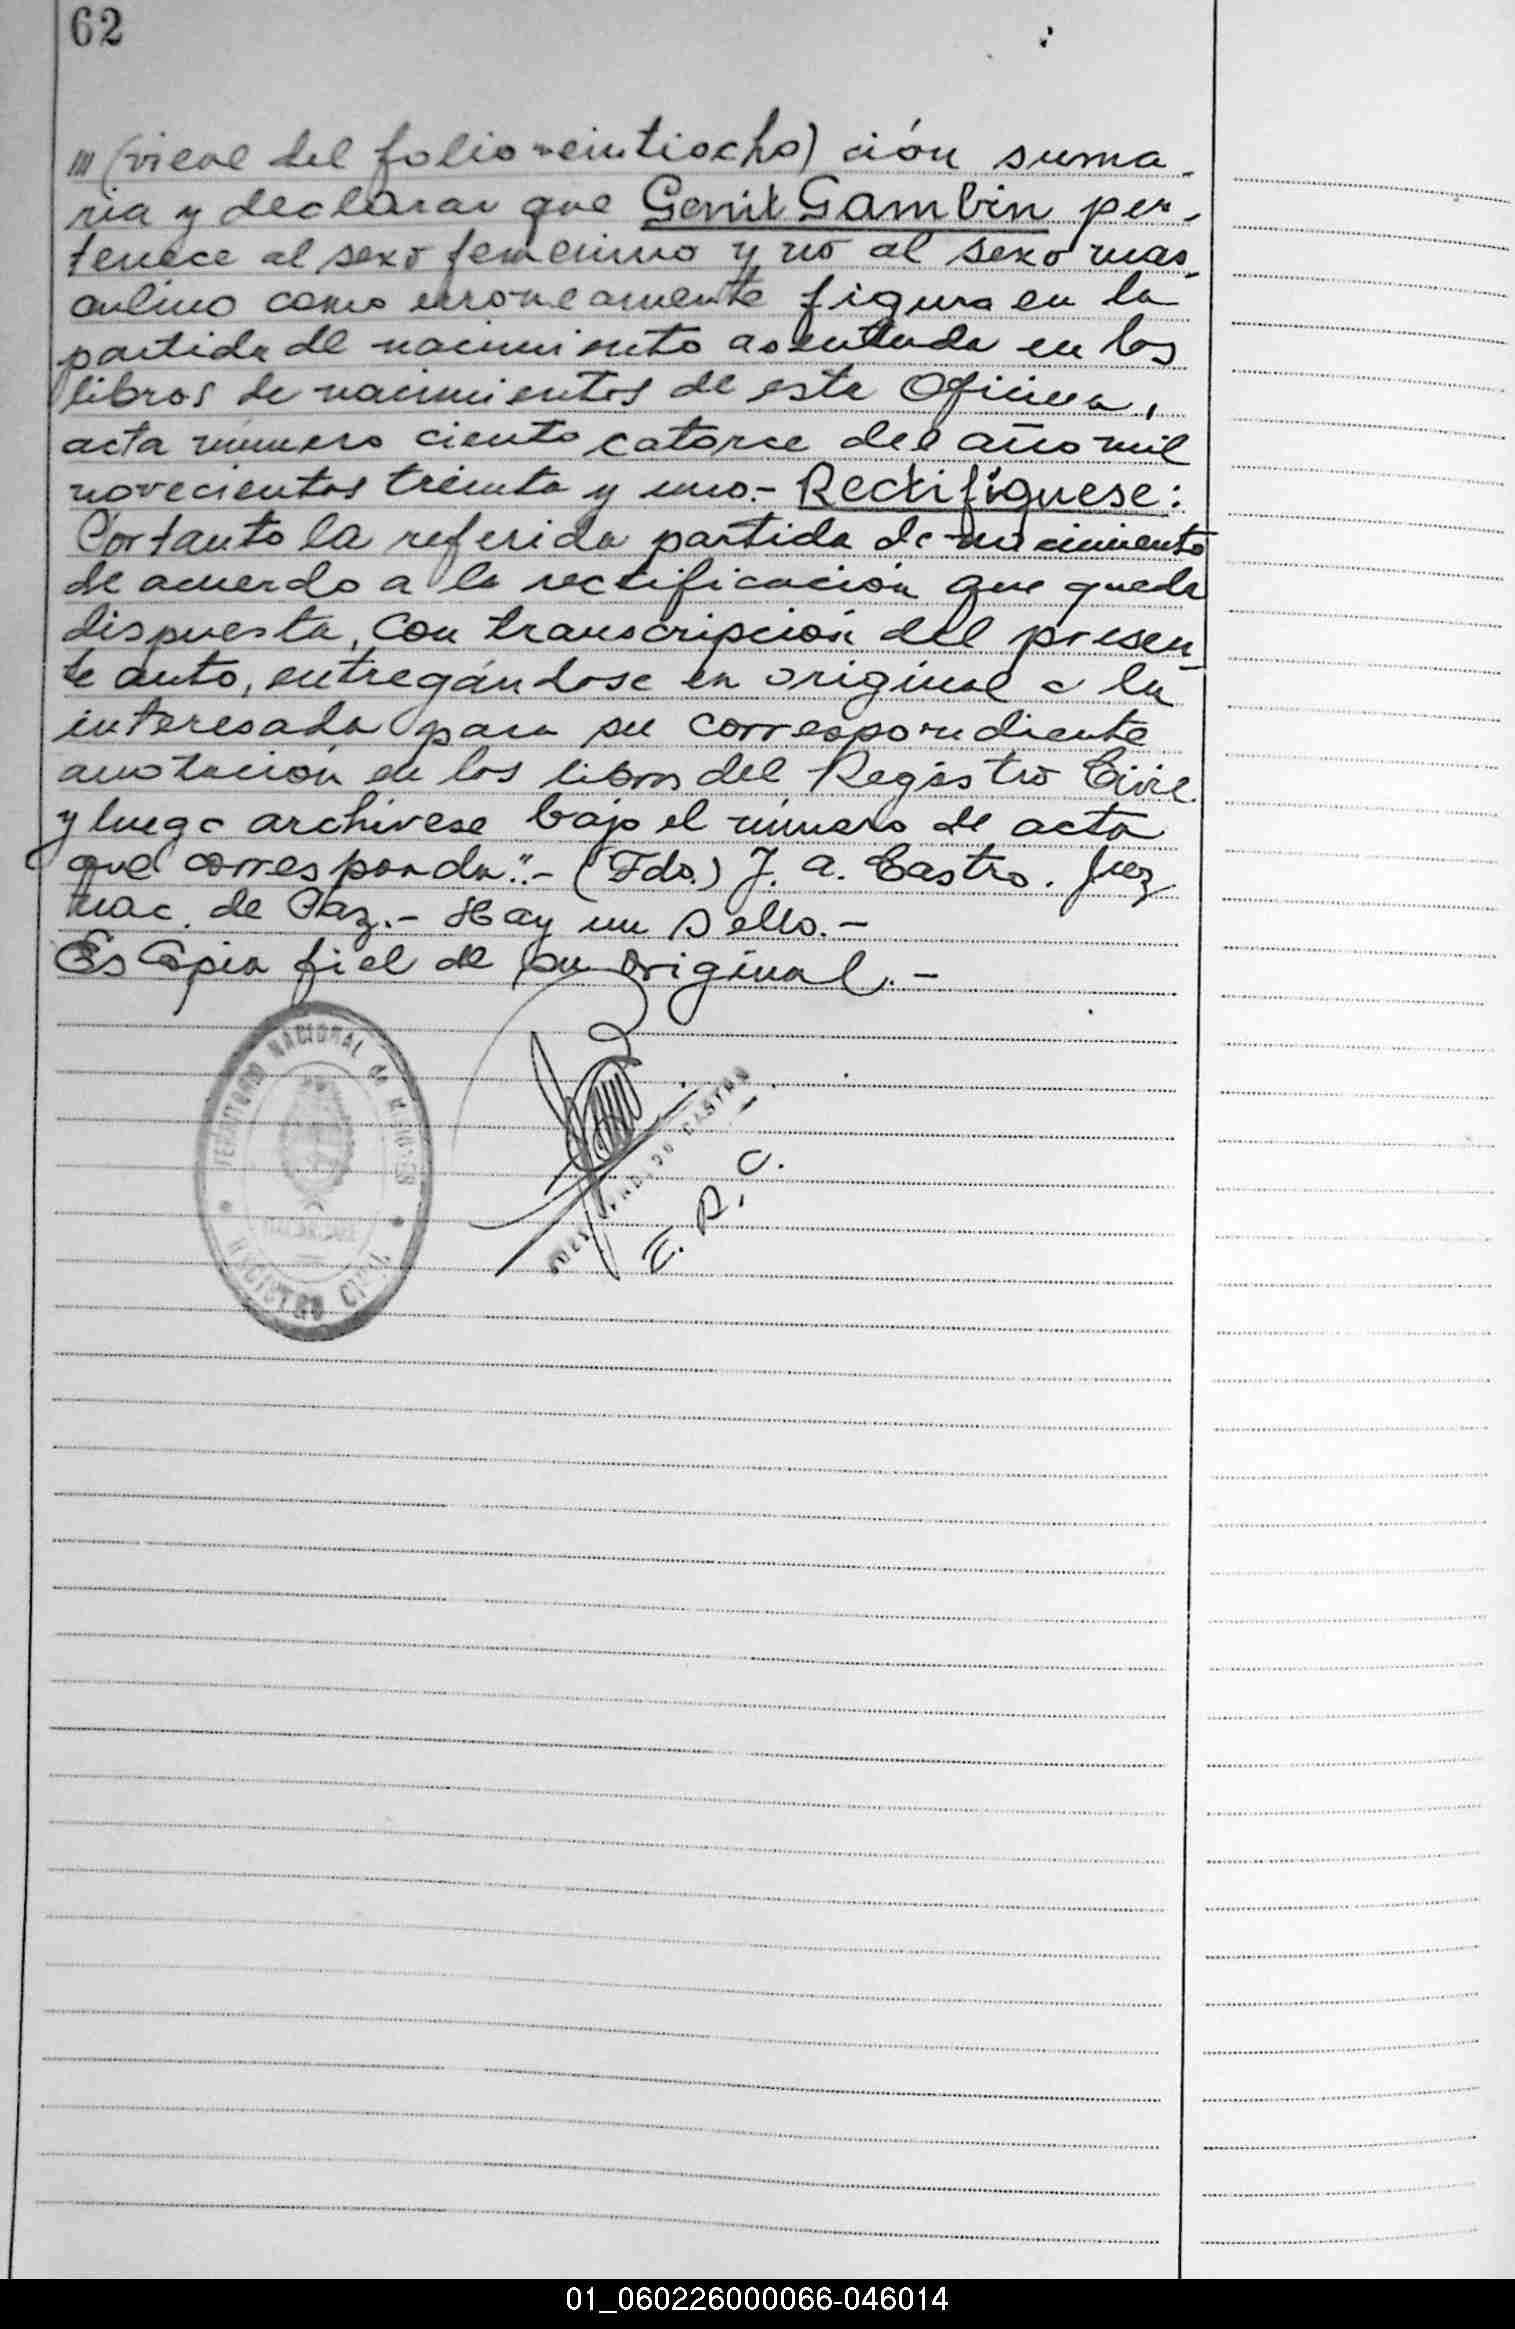 62
/// (viene del folio veintiocho) ción suma-
ria y declarar que Genit Gambin per-
tenece al sexo femenino y no al sexo mas-
culino como erroneamente figura en la
partida de nacimiento asentada en los
libros de nacimientos de esta Oficina,
acta número ciento catorce del año mil
novecientos treinta y uno.- Rectifíquese:
Por tanto la referida partida de nacimiento
de acuerdo a la rectificación que queda
dispuesta, con transcripción del presen-
te auto, entregándose en original a la
interesada para su correspondiente
anotación en los libros del Registro Civil
y luego archívese bajo el número de acta
que corresponda".- (Fdo.) J. A. Castro. Juez
Nac. de Paz.- Hay un sello.-
Es Copia fiel de su original.-
TERRITORIO NACIONAL DE MISIONES
REGISTRO CIVIL
CASTRO
E. R. C.
01_060226000066-046014